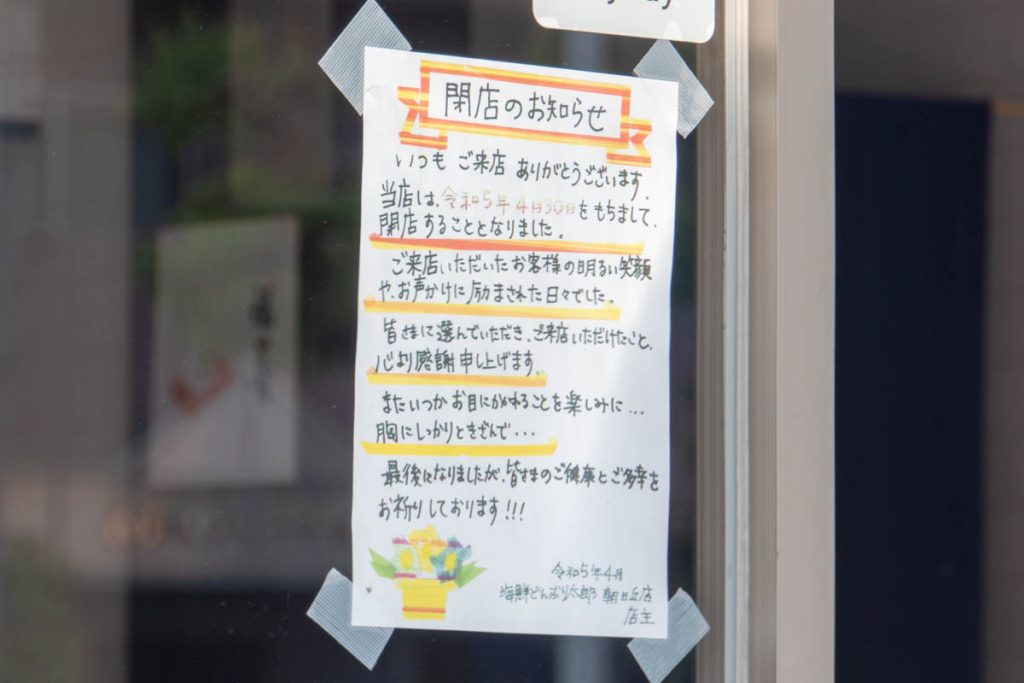 閉店のお知らせ
いつも ご来店 ありがとうございます.
当店は、令和5年4月30日をもちまして、
閉店することとなりました。
ご来店いただいたお客様の明るい笑顔
や、お声かけに励まされた日々でした。
皆さまに選んでいただき、ご来店いただけたこと、
心より感謝申し上げます
またいつか お目にかかれることを楽しみに...
胸にしっかりときざんで...
最後になりましたが、皆さまのご健康とご多幸を
お祈りしております!!!
令和5年4月
海鮮どんぶり太郎 朝日丘店
店主